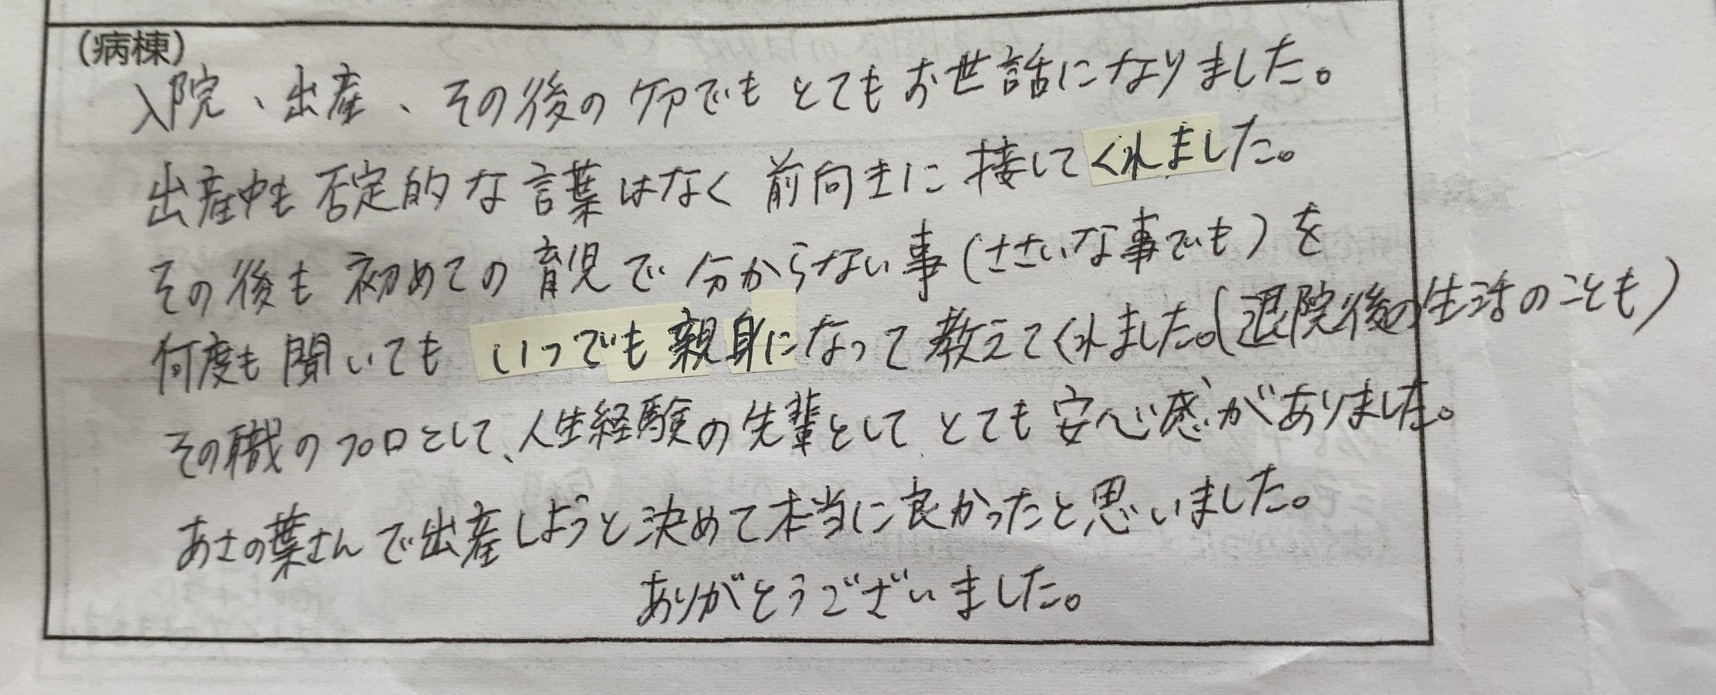 (病棟)
入院、出産、その後のケアでもとてもお世話になりました。
出産中も否定的な言葉はなく前向きに接してくれました。
その後も初めての育児で分からない事(ささいな事でも)を
何度も聞いてもいつでも親身になって教えてくれました。(退院後の生活のことも)
その職のプロとして、人生経験の先輩としてとても安心感がありました。
あさの葉さんで出産しようと決めて本当に良かったと思いました。
ありがとうございました。